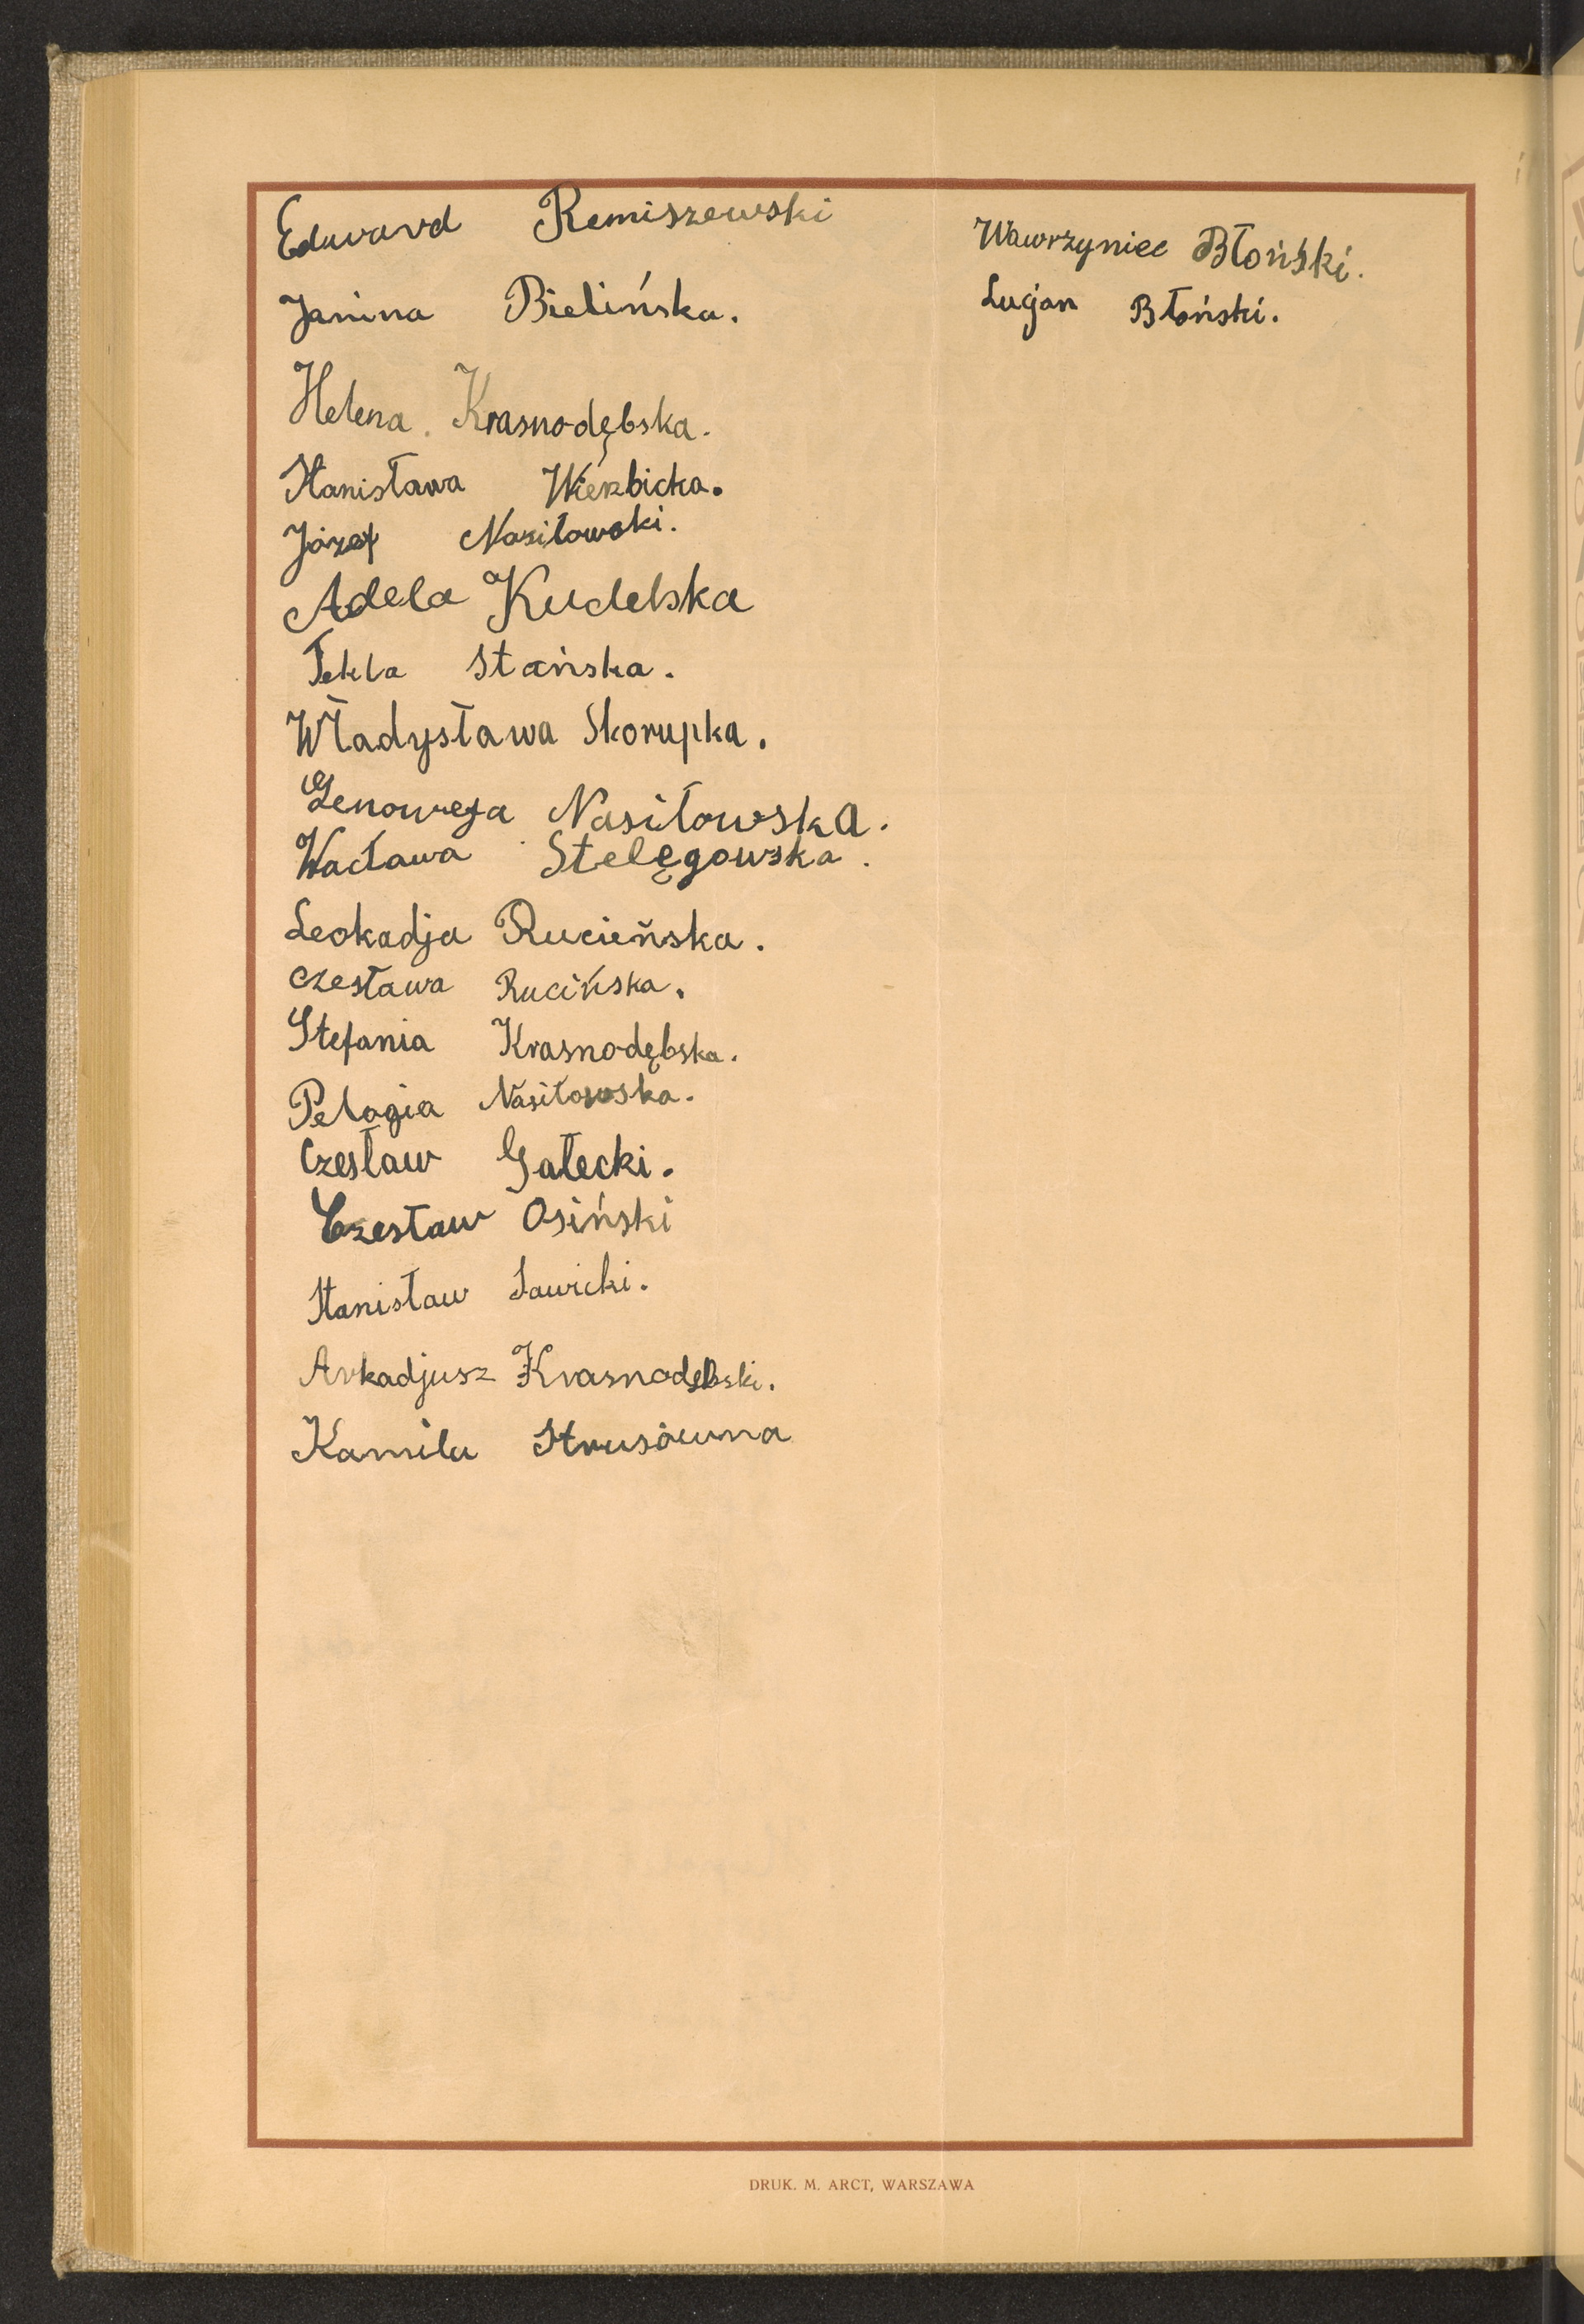 Edward Remiszewski
Janina Bielińska.
Helena Krasnodębska.
Stanisława Wierzbicka.
Józef Nasiłowski.
Adela Kudelska
Tekla Stańska.
Władysława Skorupka.
Genowefa Nasiłowska.
Wacława Stelęgowska.
Leokadja Rucieńska.
Czesława Rucińska.
Stefania Krasnodębska.
Pelagia Nasiłowska.
Czesław Gałecki.
Czesław Osiński
Stanisław Sawicki.
Arkadjusz Krasnodębski.
Kamila Strusówna
Wawrzyniec Błoński.
Lucjan Błoński.
DRUK. M. ARCT, WARSZAWA